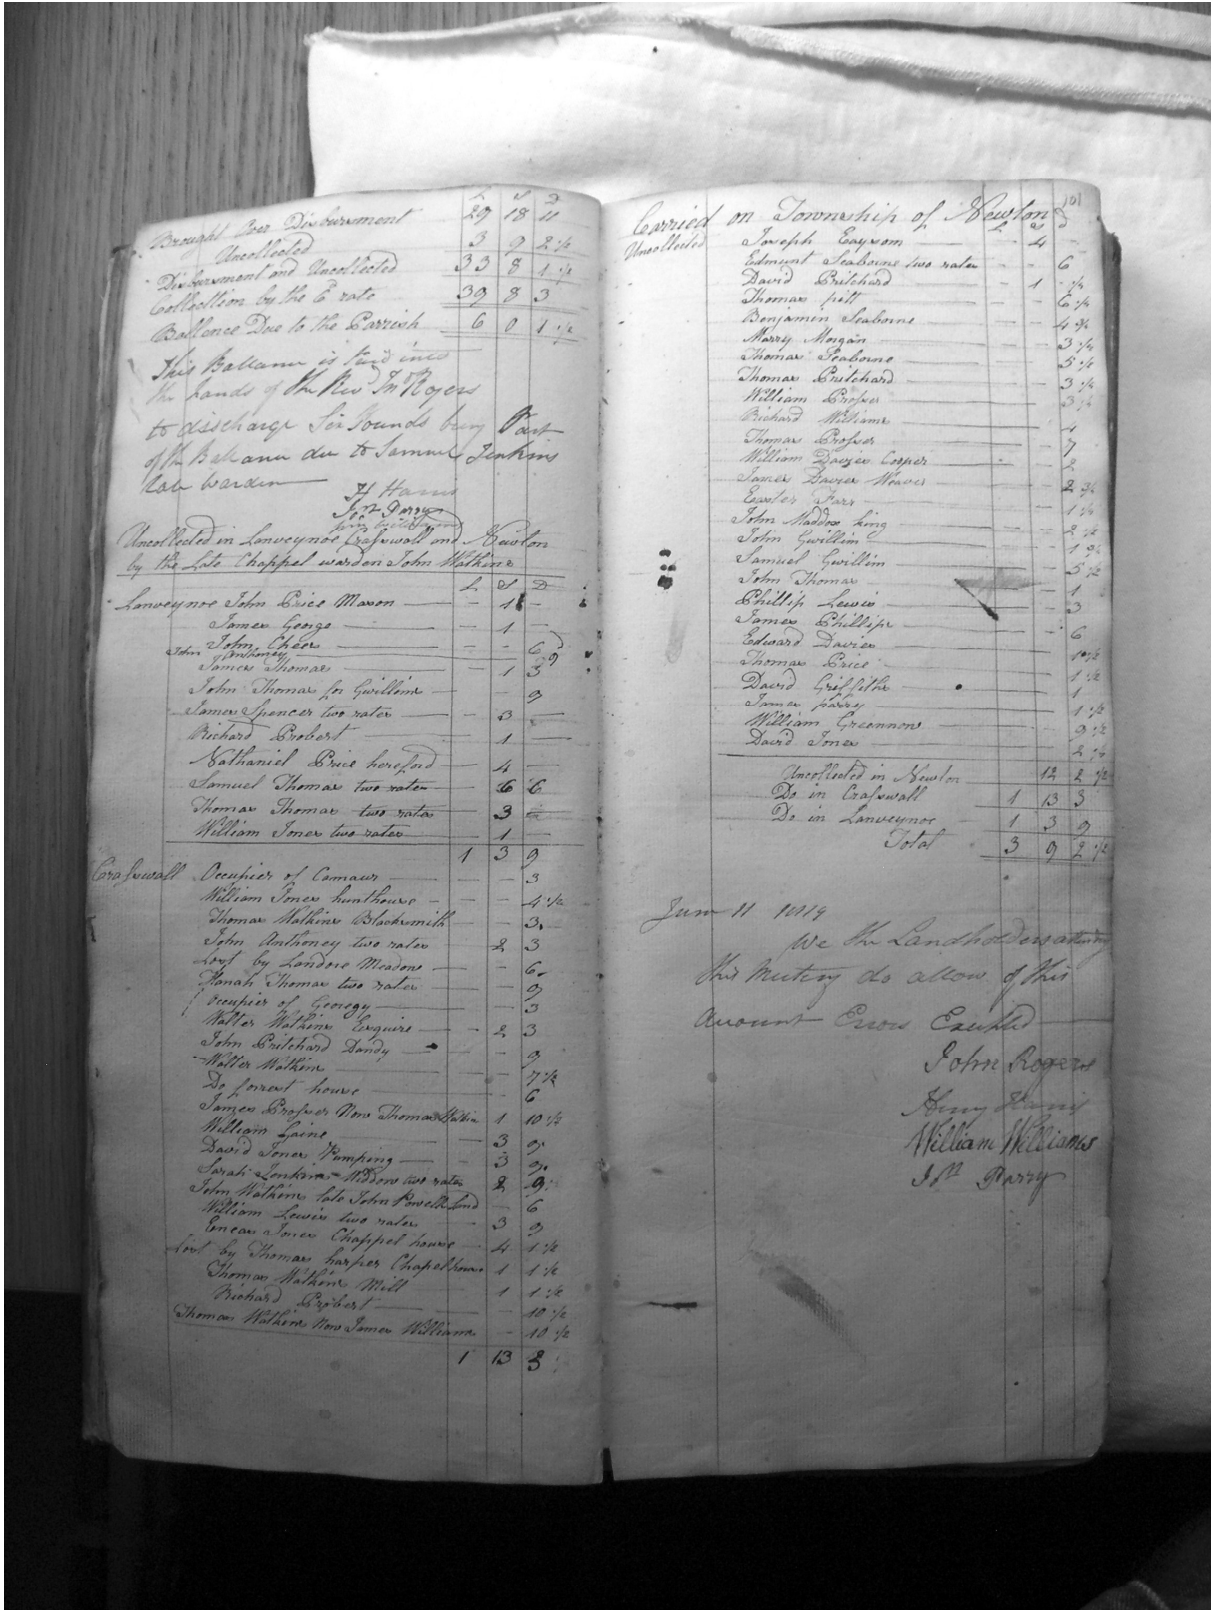 L S D
Brought Over Disbursment 29 18 11
Uncollected 3 9 2 1/2
Disbursment and Uncollected 33 8 1 1/2
Collecttion by the £ rate 39 8 3
Ballence Due to the Parrish 6 0 1 1/2
This Ballance is
the hands of the Revd Jno Rogers
to discharge Six Pounds being Part
of the Ballance due to Samuel Jenkins
late Warden
H Harris
Jno Parry
Uncollected in Lanveynoe Crasswall and Newton
by the Late Chappel warden John Watkins
L S D
Lanveynoe John Price Mason — 1 —
James George — 1 —
John Cheer — — 6
John Anthoney 9
James Thomas — 1 3
John Thomas for Gwillim — — 9
James Spencer two rates — 3 —
Richard Probert — 1 —
Nathaniel Price hereford — 4 —
Samuel Thomas two rates — 6 6
Thomas Thomas two rates — 3 —
William Jones two rates — 1 —
1 3 9
Crasswall Occupier of Camaur — — 3
William Jones hunthouse — — 4 1/2
Thomas Watkins Blacksmith — — 3
John Anthoney two rates — 2 3
Lost by Landore Meadow — — 6
Hanah Thomas two rates — — 9
Occupier of Georegy — — 3
Walter Watkins Esquire — 2 3
John Pritchard Dandy — — 9
Walter Watkins — — 7 1/2
Do forrest house — — 6
James Prosser Now Thomas Watkins 1 10 1/2
William Laine — 3 9
David Jones Pamping — 3 9
Sarah Jenkins Widdow two rates 2 9
John Watkins late John Powells land — 6
William Lewis two rates — 3 9
Eneas Jones Chappel house — 4 1 1/2
Lost by Thomas harper Chapel house 1 1 1/2
Thomas Watkins Mill — 1 1 1/2
Richard Probert — — 10 1/2
Thomas Watkins Now James Williams — 10 1/2
1 13 3
101
Carried on Township of Newton
L S D
Uncollected Joseph Eayson — 4 —
Edmunt Seaborne two rates — — 6
David Pritchard — 1 1/2
Thomas pitt — — 6 1/2
Benjamin Seaborne — — 4 3/4
Marry Morgan — — 3 1/2
Thomas Seaborne — — 5 1/2
Thomas Pritchard — — 3 1/2
William Prosser — — 3 1/2
Richard Williams — — 4
Thomas Prosser — — 7
William Davies Cooper — — 2
James Davies Weaver — — 2 3/4
Easter Farr — — 1 1/2
John Maddox king — — 2 1/2
John Gwillim — — 1 3/4
Samuel Gwillim — — 5 1/2
John Thomas — — 1
Phillip Lewis — — 3
James Phillips — — 6
Edward Davies — — 1 1/2
Thomas Price — — 1 1/2
David Griffiths — — 1
James parry — — 1 1/2
William Greennow — — 9 1/2
David Jones — — 2 1/2
Uncollected in Newton 12 2 1/2
Do in Crasswall 1 13 3
Do in Lanveynoe 1 3 9
Total 3 9 2 1/2
June 11 1819
We the Landholders attending
this Meeting do allow of this
Account Errors Excepted
John Rogers
Henry Harris
William Williams
Jno Parry